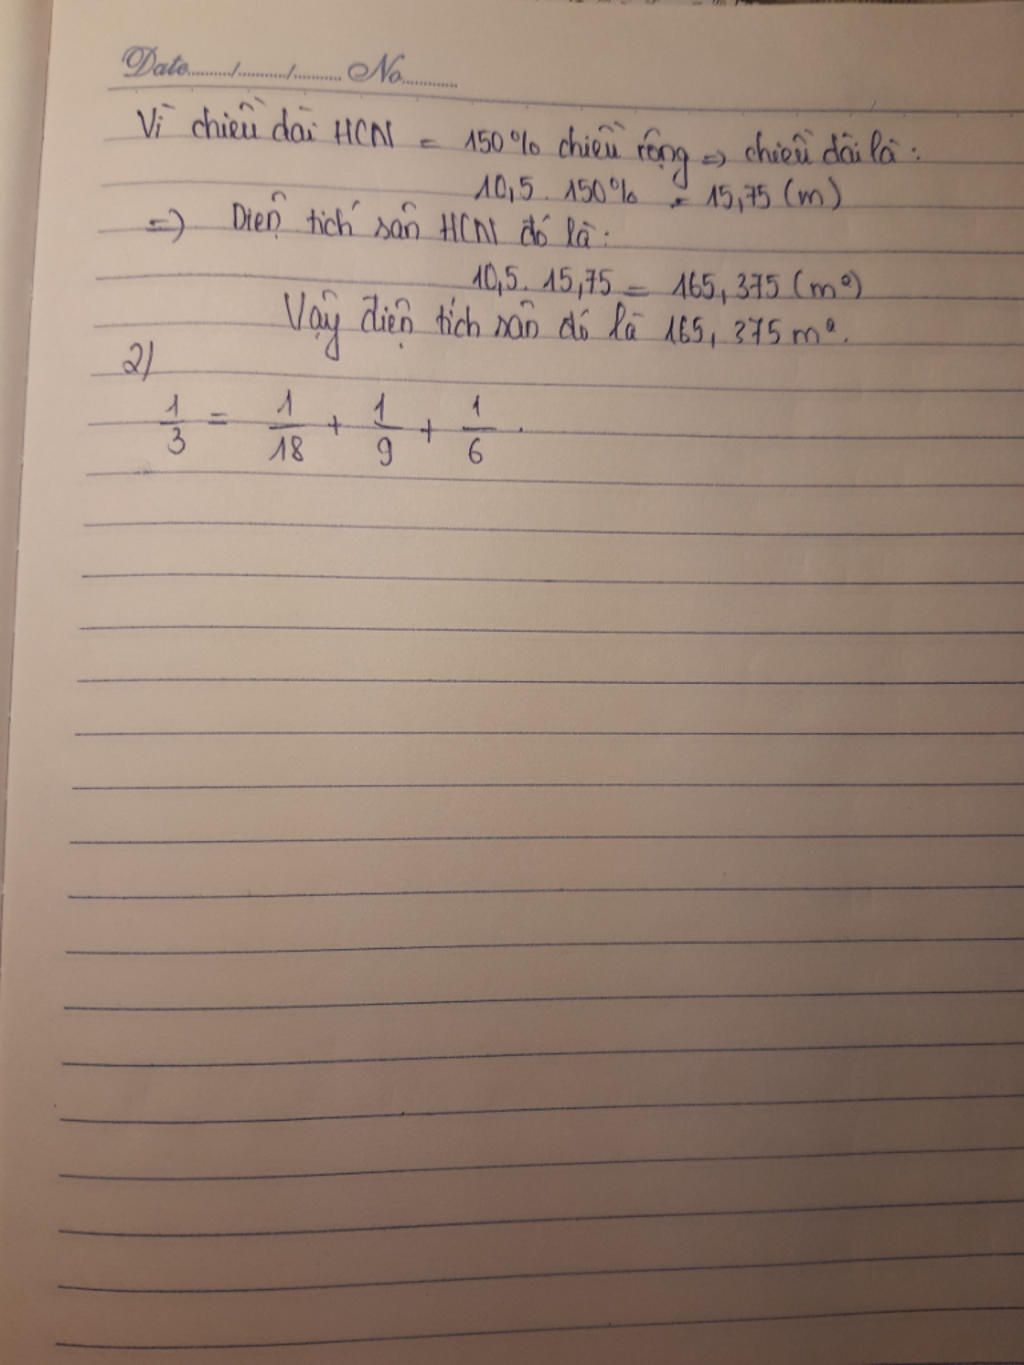 Date........../........../.......... No............
Vì chiều dài HCN = 150% chiều rộng => chiều dài là:
10,5 . 150% = 15,75 (m)
=> Diện tích sân HCN đó là:
10,5. 15,75 = 165,375 (m²)
Vậy diện tích sân đó là 165,375 m².
2)
1/3 = 1/18 + 1/9 + 1/6 .